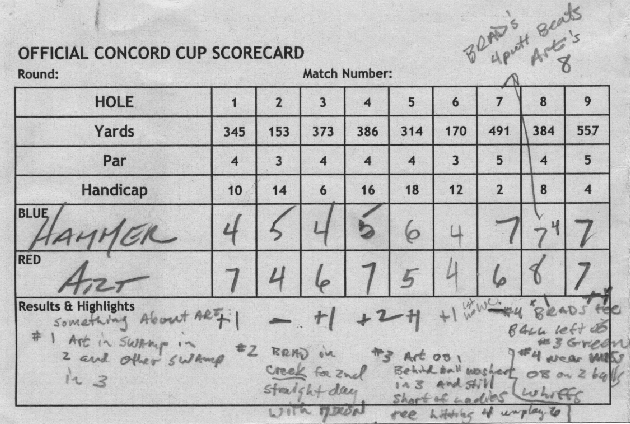 BRAD'S
4 putt Beats
Art's
8
OFFICIAL CONCORD CUP SCORECARD
Round: Match Number:
HOLE 1 2 3 4 5 6 7 8 9
Yards 345 153 373 386 314 170 491 384 557
Par 4 3 4 4 4 3 5 4 5
Handicap 10 14 6 16 18 12 2 8 4
BLUE
HAMMER 4 5 4 5 6 4 7 7 4 7
RED
ART 7 4 6 7 5 4 6 8 7
Results & Highlights
Something About ART +1 - +1 +2 +1 +1
#1 Art in Swamp in
2 and other swamp
in 3
#2 BRAD in
Creek for 2nd
straight day
with
#3 Art OB 1
Behind ball washer
in 3 And still
short of ladies
tee hitting 4
#4 BRADS tee
BALL left of
#3 Green
#4 near
OB on 2
Whiffs